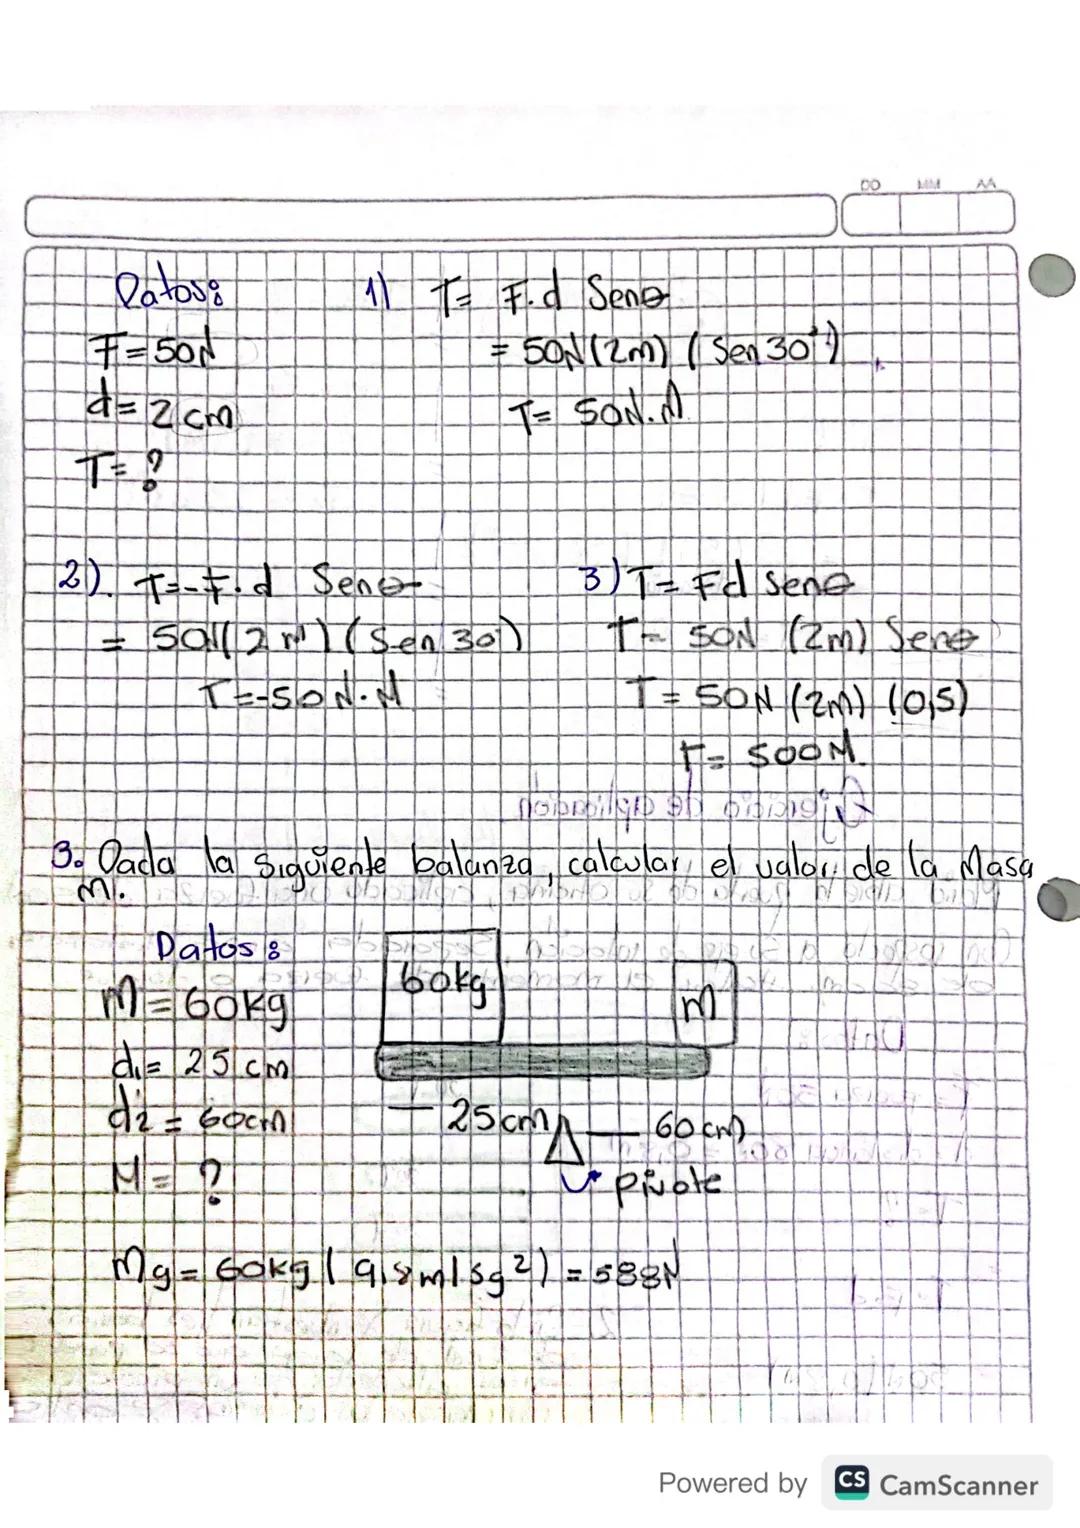 DD MM AA
Datos:
F=50N
d=2cm
T=?
1) T= F.d Senθ
= 50N(2m) (Sen30°)
T= 50N.M
2). T=-F.d Senθ
= 50N(2m)(Sen 30)
T=-50N.M
3) T= Fd Senθ
T= 50N (2m) Senθ
T= 50N (2m) (0,5)
T= 500M.
3. Dada la siguiente balanza, calcular, el valor, de la Masa
m.
Datos:
M=60kg
d1= 25 cm
d2= 60cm
M= ?
60kg
m
25cm
60cm
pivote
Mg= 60kg (9,8m/sg²) = 588N
Powered by CS CamScanner